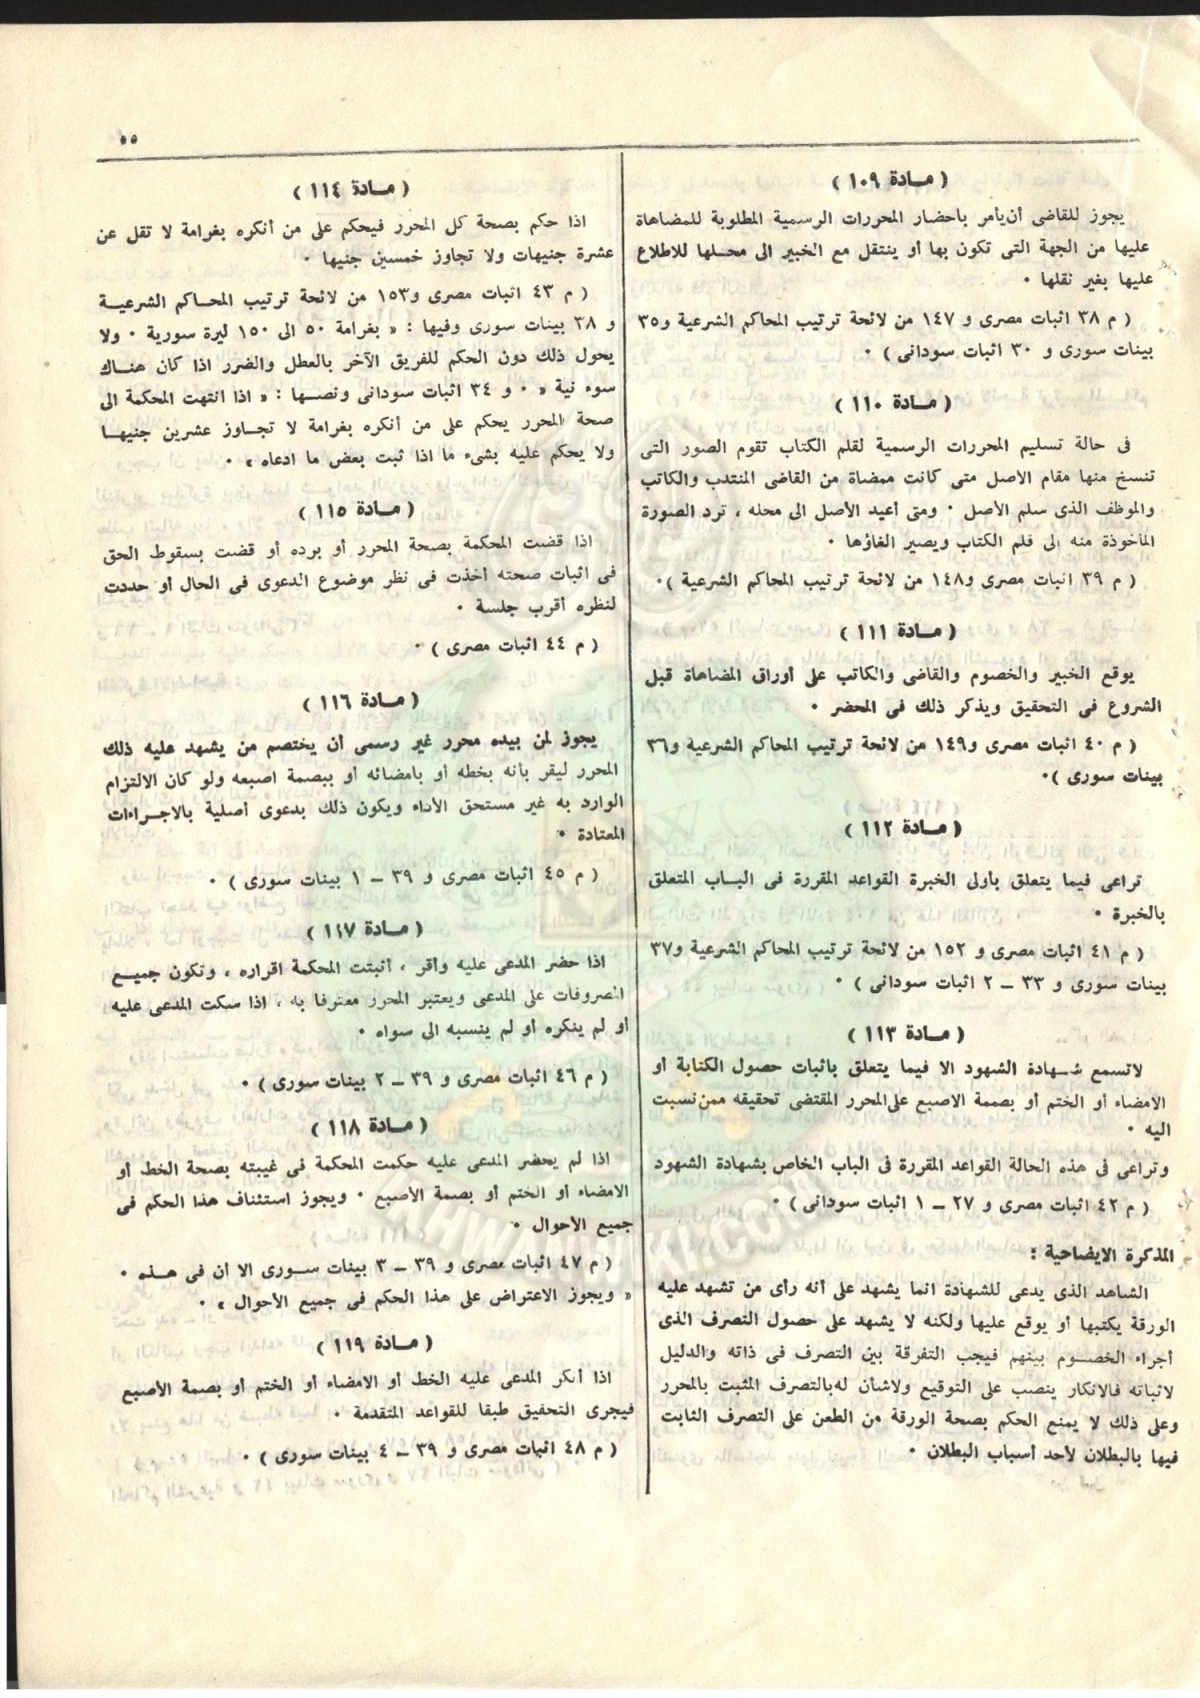 ٥٥
( مـادة ١٠٩ )
يجوز للقاضى أن يأمر باحضار المحررات الرسمية المطلوبة للمضاهاة
عليها من الجهة التى تكون بها أو ينتقل مع الخبير الى محـلها للاطلاع
عليها بغير نقلها ٠
( م ٣٨ اثبات مصرى و ١٤٧ من لائحة ترتيب المحاكم الشرعية و٣٥
بينات سورى و ٣٠ اثبات سودانى ) ٠
( مـادة ١١٠ )
فى حالة تسليم المحررات الرسمية لقلم الكتاب تقوم الصور التى
تنسخ منها مقام الاصل متى كانت ممضاة من القاضى المنتدب والكاتب
والموظف الذى سلم الأصل ٠ ومتى أعيد الأصل الى محله ، ترد الصورة
المأخوذة منه إلى قلم الكتاب ويصير الغاؤها ٠
( م ٣٩ اثبات مصرى و١٤٨ من لائحة ترتيب المحاكم الشرعية )٠
( مـادة ١١١ )
يوقع الخبير والخصوم والقاضى والكاتب على أوراق المضاهاة قبل
الشروع فى التحقيق ويذكر ذلك فى المحضر ٠
( م ٤٠ اثبات مصرى و١٤٩ من لائحة ترتيب المحاكم الشرعية و٣٦
بينات سورى )٠
( مـادة ١١٢ )
تراعى فيما يتعلق بأولى الخبرة القواعد المقررة فى البـاب المتعلق
بالخبرة ٠
( م ٤١ اثبات مصرى و ١٥٢ من لائحة ترتيب المحاكم الشرعية و٣٧
بينات سورى و ٣٣ ــ ٢ اثبات سودانى ) ٠
( مـادة ١١٣ )
لاتسمع شـهادة الشهود الا فيما يتعلق باثبات حصول الكتابة أو
الامضاء أو الختم أو بصمة الاصبع على المحرر المقتضى تحقيقه ممن نسبت
اليه ٠
وتراعى فى هذه الحالة القواعد المقررة فى الباب الخاص بشهادة الشهود
( م ٤٢ اثبات مصرى و ٢٧ ــ ١ اثبات سودانى ) ٠
المذكرة الايضاحية :
الشاهد الذى يدعى للشهادة انما يشهد على أنه رأى من تشهد عليه
الورقة يكتبها أو يوقع عليها ولكنه لا يشهد على حصول التصرف الذى
أجراء الخصـوم بينهم فيجب التفرقة بين التصرف فى ذاته والدليل
لاثباته فالانكار ينصب على التوقيع ولاشأن له بالتصرف المثبت بالمحرر
وعلى ذلك لا يمنع الحكم بصحة الورقة من الطعن على التصرف الثابت
فيها بالبطلان لأحد أسباب البطلان ٠
( مـادة ١١٤ )
اذا حكم بصحة كل المحرر فيحكم على من أنكره بغرامة لا تقل عن
عشرة جنيهات ولا تجاوز خمسين جنيها ٠
( م ٤٣ اثبات مصرى و١٥٣ من لائحة ترتيب المحـاكم الشرعيـة
و ٣٨ بينات سورى وفيها : « بغرامة ٥٠ الى ١٥٠ ليرة سورية ٠ ولا
يحول ذلك دون الحكم للفريق الآخر بالعطل والضرر اذا كان هنـاك
سوء نية » ٠ و ٣٤ اثبات سودانى ونصـها : « اذا انتهت المحكمة الى
صحة المحرر يحكم على من أنكره بغرامة لا تجـاوز عشرين جنيهـا
ولا يحكم عليه بشىء ما اذا ثبت بعض ما ادعاه » ٠
( مـادة ١١٥ )
اذا قضت المحكمة بصحة المحرر أو برده أو قضت بسقوط الحق
فى اثبات صحته أخذت فى نظر موضوع الدعوى فى الحال أو حددت
لنظره أقرب جلسة ٠
( م ٤٤ اثبات مصرى ) ٠
( مـادة ١١٦ )
يجوز لمن بيده محرر غير رسمى أن يختصم من يشهد عليه ذلك
المحرر ليقر بأنه بخطه أو بامضائه أو ببصمة اصبعه ولو كان الالتزام
الوارد به غير مستحق الأداء ويكون ذلك بدعوى أصلية بالاجـراءات
المعتادة ٠
( م ٤٥ اثبات مصرى و ٣٩ ــ ١ بينات سورى ) ٠
( مـادة ١١٧ )
اذا حضر المدعى عليه وأقر ، أثبتت المحكمة اقراره ، وتكون جميـع
المصروفات على المدعى ويعتبر المحرر معترفا به ، اذا سكت المدعى عليه
أو لم ينكره أو لم ينسبه الى سواه ٠
( م ٤٦ اثبات مصرى و ٣٩ ــ ٢ بينات سورى ) ٠
( مـادة ١١٨ )
اذا لم يحضر المدعى عليه حكمت المحكمة فى غيبته بصحة الخط أو
الامضاء أو الختم أو بصمة الأصبع ٠ ويجوز استئناف هذا الحكم فى
جميع الأحوال ٠
( م ٤٧ اثبات مصرى و ٣٩ ــ ٣ بينات سـورى الا ان فى هـذه ٠
« ويجوز الاعتراض على هذا الحكم فى جميع الأحوال » ٠
( مـادة ١١٩ )
اذا أنكر المدعى عليه الخط أو الامضاء أو الختم أو بصمة الأصبع
فيجرى التحقيق طبقا للقواعد المتقدمة ٠
( م ٤٨ اثبات مصرى و ٣٩ ــ ٤ بينات سورى ) ٠